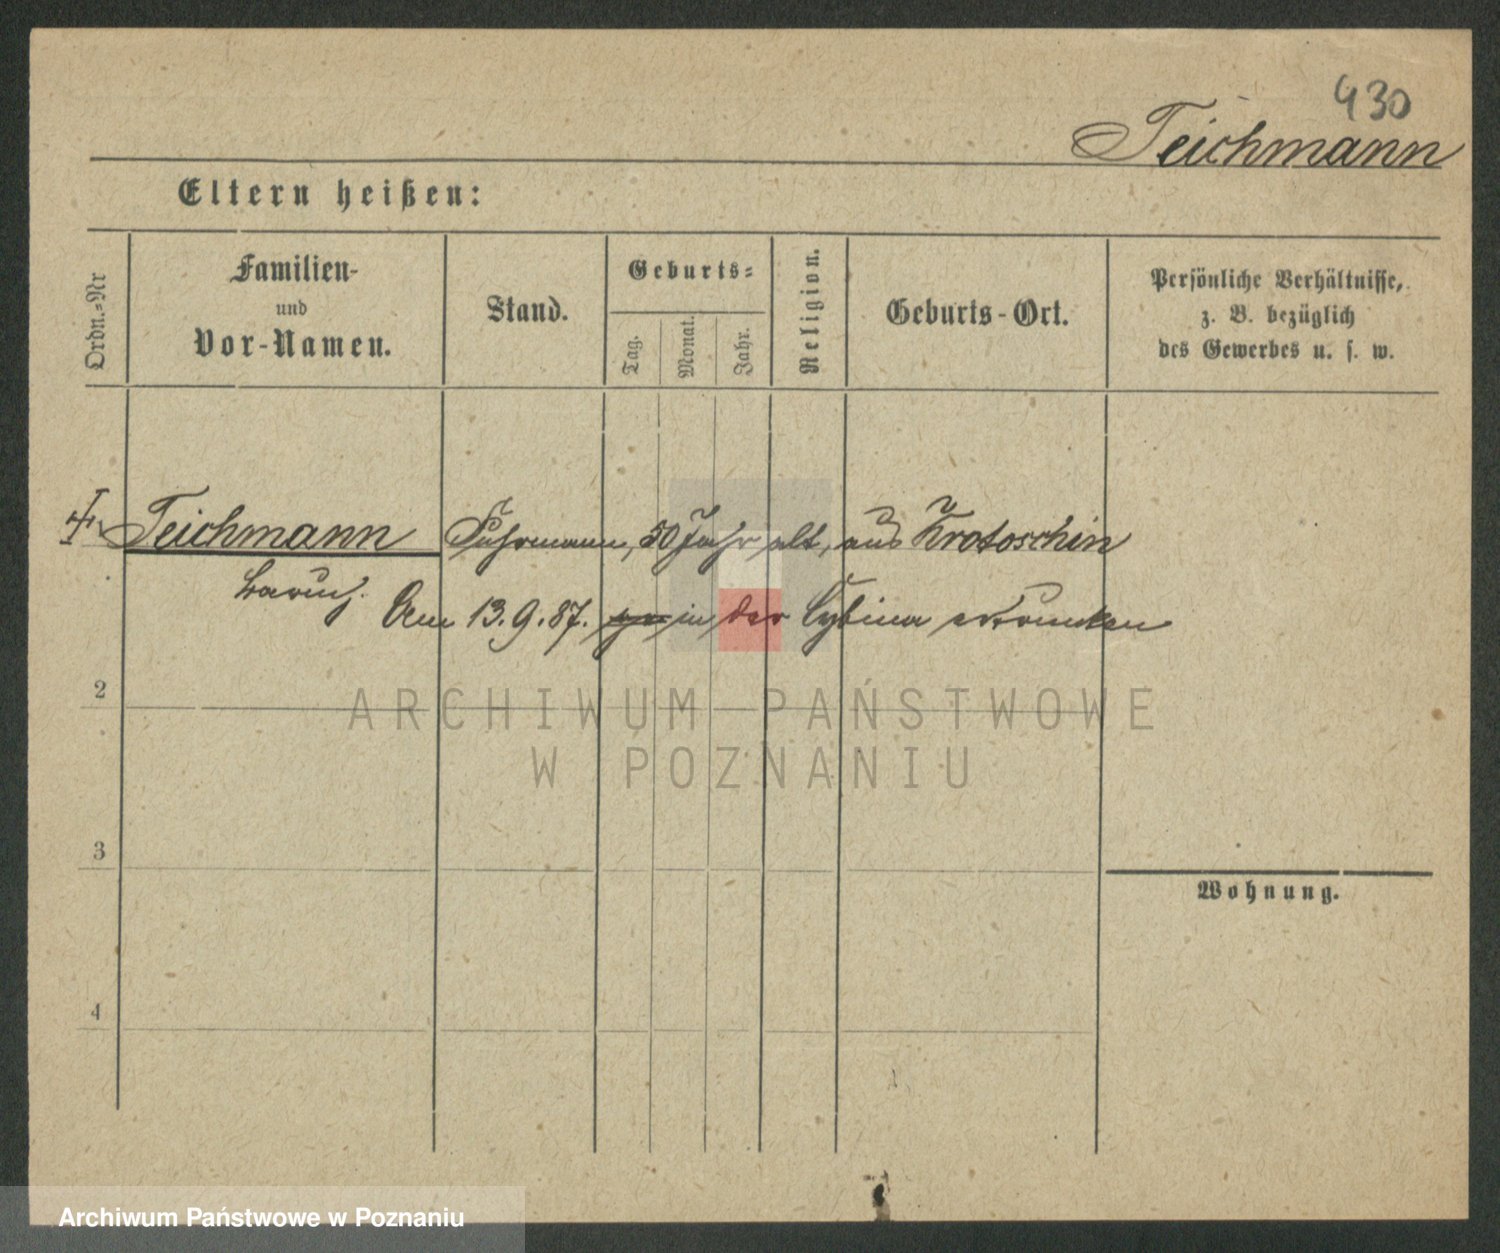 430
Teichmann
Eltern heißen:
Ordn.=Nr
Familien-
und
Vor-Namen.
Stand.
Geburts=
Tag.
Monat.
Jahr.
Religion.
Geburts-Ort.
Persönliche Verhältnisse,
z. B. bezüglich
des Gewerbes u. s. w.
Teichmann Fuhrmann, 50 Jahr alt, aus Krotoschin
Baruch.
Am 13.9.87. in der Cybina ertrunken
2
ARCHIWUM PAŃSTWOWE
W POZNANIU
3
Wohnung.
4
Archiwum Państwowe w Poznaniu